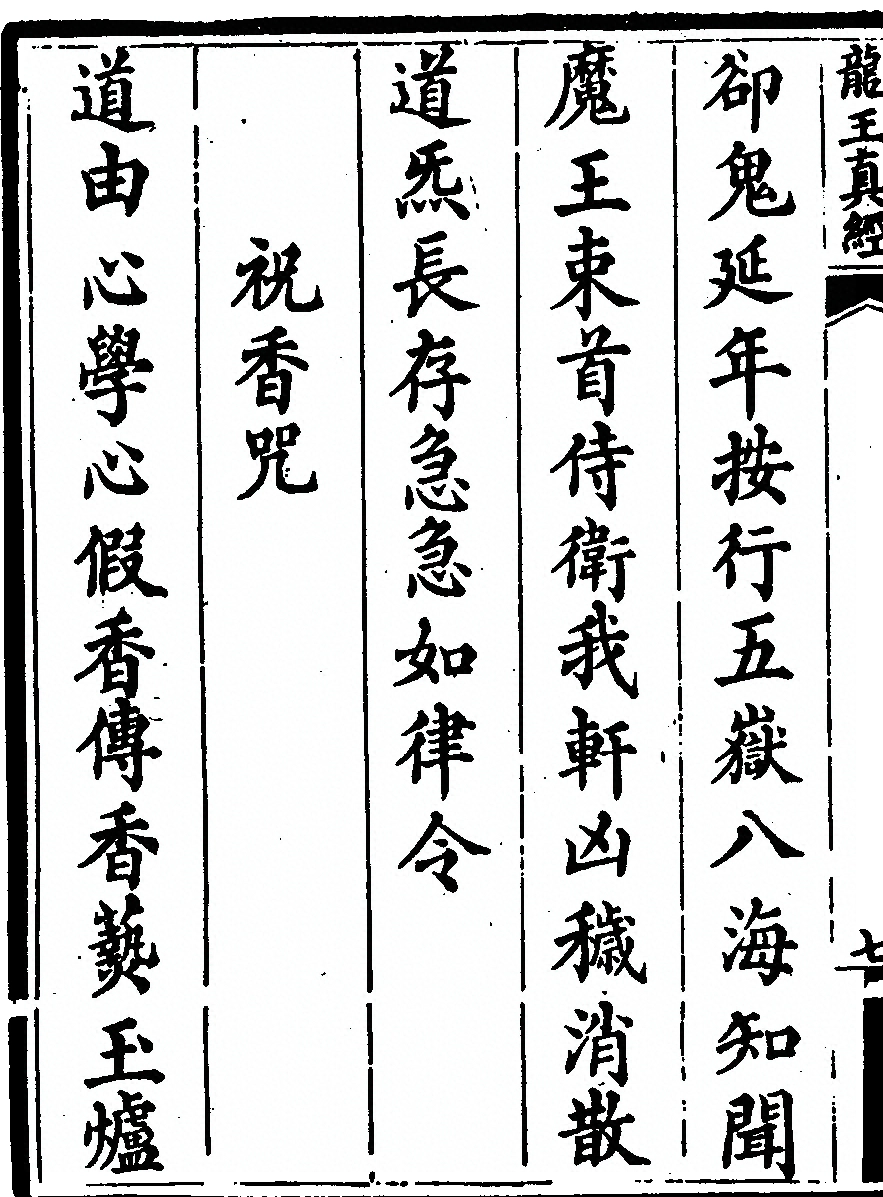 龍王真經
七
卻鬼延年按行五嶽八海知聞
魔王束首侍衛我軒凶穢消散
道炁長存急急如律令
祝香咒
道由心學心假香傳香爇玉爐